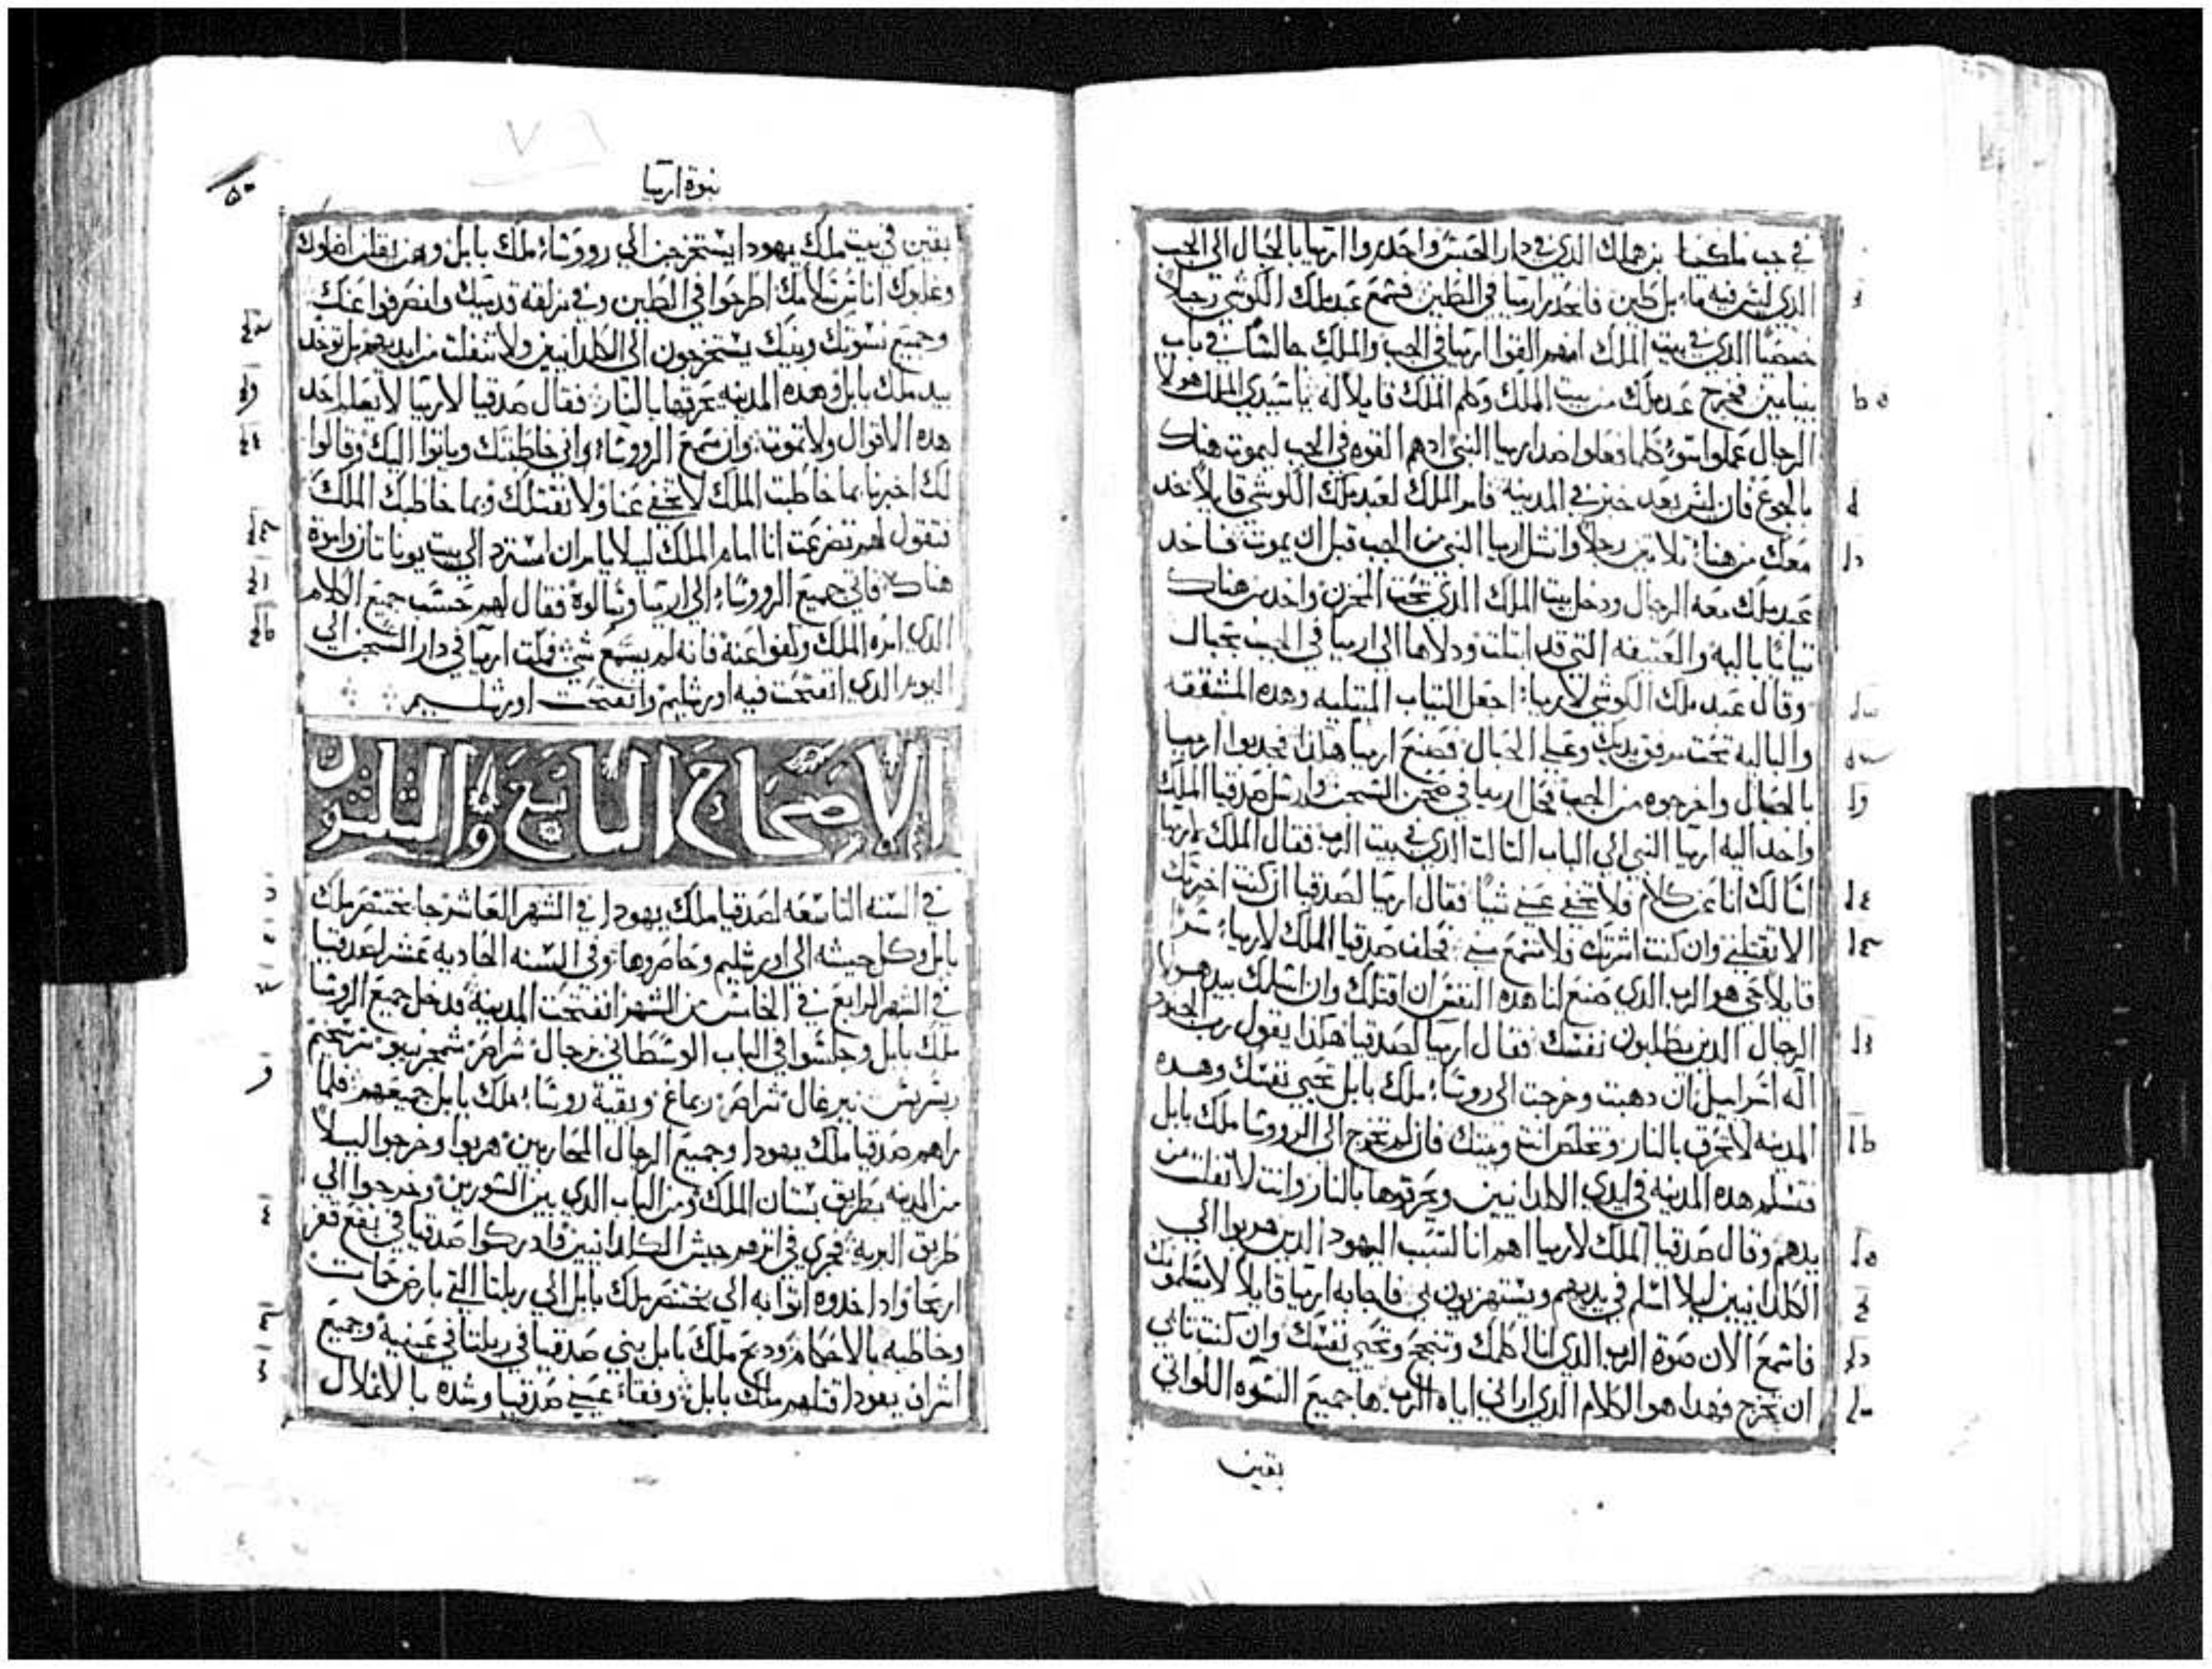 في جب ملكيا بن هملك الذي في دار الحبس واحدروا ارميا بالحبال الى الجب
الذي ليس فيه ماء بل طين فانحدر ارميا في الطين فسمع عبدملك الكوشي رجلاً
خصيًا الذي في بيت الملك انهم القوا ارميا في الجب والملك جالسًا في باب
بنيامين فخرج عبدملك من بيت الملك وكلم الملك قايلا له يا سيدي الملك هولا
الرجال عملوا سوء كلما فعلوا ضد ارميا النبي ادهم القوه في الجب ليموت هناك
بالجوع فان ليس بعد خبز في المدينه فامر الملك لعبدملك الكوشي قايلاً خد
معك من هنا تلاتين رجلا وانشل ارميا النبي من الجب قبل ان يموت فاخد
عبدملك معه الرجال ودخل بيت الملك الذي تحت المخزن واخد من هناك
تيابًا باليه والعتيقه التي قد ابتلت ودلاها الى ارميا في الجب بحبال
وقال عبدملك الكوشي لارميا اجعل التياب المبتليه وهده المشققه
والباليه تحت مرفق يديك وعلى الحبال فصنع ارميا هكذا فجدبوا ارميا
بالحبال واخرجوه من الجب فحل ارميا في صحن السجن وارسل صدقيا الملك
واخد اليه ارميا النبي الى الباب التالت الذي في بيت الرب فقال الملك لارميا
اسالك انا عن كلام فلا تخفي عني شيًا فقال ارميا لصدقيا ان كنت اخبرتك
الا تقتلني وان كنت اشرتك فلا تسمع مني فحلف صدقيا الملك لارميا سرًا
قايلا حي هو الرب الذي صنع لنا هده النفس ان اقتلك وان اسلك بيد هولا
الرجال الدين يطلبون نفسك فقال ارميا لصدقيا هكذا يقول رب الجنود
اله اسراييل ان دهبت وخرجت الى روسا ملك بابل تحيي نفسك وهده
المدينه لا تحرق بالنار وتخلص انت وبيتك فان لم تخرج الى الرووسا ملك بابل
فتسلم هده المدينه في ايدي الكلدانيين ويحرقوها بالنار وانت لا تفلت من
يدهم وقال صدقيا الملك لارميا اهم انا لسبب اليهود الدين هربوا الى
الكلدانيين ليلا اسلم في يديهم ويستهزيون بي فاجابه ارميا قايلاً لا يسلمونك
فاسمع الان صوة الرب الذي انا اكلمك وتنجح وتحيي نفسك وان كنت تابي
ان تخرج فهدا هو الكلام الذي اراني اياه الرب ها جميع النسوه اللواتي
بقين
نبوة ارميا
٥٠
٧٦
بقين في بيت ملك يهودا يستخرجن الى رووساء ملك بابل وهن يقلن اضلوك
وغلبوك اناس سلامك اطرحوا في الطين وفي مزلقه قدميك وانصرفوا عنك
وجميع نسوتك وبنيك يستخرجون الى الكلدانيين ولا تنفلت من ايديهم بل توخد
بيد ملك بابل وهده المدينه يحرقها بالنار فقال صدقيا لارميا لا يعلم احد
هده الاقوال ولا تموت وان سمع الرووساء اني خاطبتك وياتوا اليك وقالوا
لك اخبرنا بما خاطبت الملك لا تخفي عنا ولا نقتلك وبما خاطبك الملك
فتقول لهم تضرعت انا امام الملك ليلا يامر ان استرد الى بيت يوناتان واموت
هناك فاتى جميع الرووساء الى ارميا وسالوه فقال لهم حسب جميع الكلام
الذي امره الملك وكفوا عنه فانه لم يسمع شي فمكت ارميا في دار السجن الى
اليوم الذي انفتحت فيه اورشليم وانفتحت اورشليم
الاصحاح التاسع والتلتون
في السنه التاسعه لصدقيا ملك يهودا في الشهر العاشر جا بختنصر ملك
بابل وكل جيشه الى اورشليم وحاصروها وفي السنه الحاديه عشر لصدقيا
في الشهر الرابع في الخامس من الشهر انفتحت المدينه فدخل جميع الروسا
ملك بابل وجلسوا في الباب الوسطاني نرجال شراصر شمجر نبو سرسخيم
ربسريس نيرغال شراصر ربماغ وبقية روسا ملك بابل جميعهم فلما
راهم صدقيا ملك يهودا وجميع الرجال المحاربين هربوا وخرجوا ليلاً
من المدينه بطريق بستان الملك ومن الباب الذي بين السورين وخرجوا الى
طريق البريه فجرى في اترهم جيش الكلدانيين فادركوا صدقيا في بقع قفر
اريحا واد اخدوه اتوا به الى بختنصر ملك بابل الى ربلتا التي بارض حمات
وخاطبه بالاحكام ودبح ملك بابل بني صدقيا في ربلتا في عينيه وجميع
اشراف يهودا قتلهم ملك بابل وفقاء عيني صدقيا وشده بالاغلال